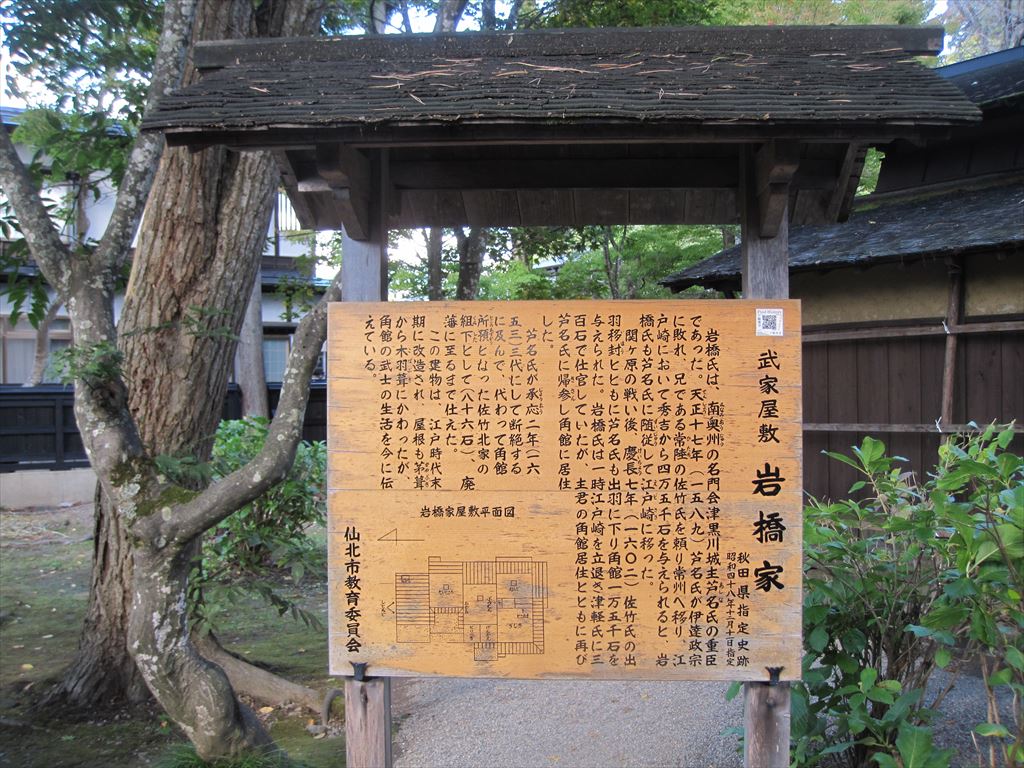 武家屋敷 岩橋家
秋田県指定史跡
昭和四十八年十二月十日指定
岩橋氏は、南奥州の名門会津黒川城主芦名氏の重臣
であった。天正十七年(一五八九)芦名氏が伊達政宗
に敗れ、兄である常陸の佐竹氏を頼り常州へ移り、江
戸崎において秀吉から四万五千石を与えられると、岩
橋氏も芦名氏に随従して江戸崎に移った。
関ヶ原の戦い後、慶長七年(一六〇二)佐竹氏の出
羽移封とともに芦名氏も出羽に下り角館一万五千石を
与えられた。岩橋氏は一時江戸崎を立退き津軽氏に三
百石で仕官していたが、主君の角館居住とともに再び
芦名氏に帰参し角館に居住
した。
芦名氏が承応二年(一六
五三)三代にして断絶する
に及んで、代わって角館
所預となった佐竹北家の
組下として(八十六石)、廃
藩に至るまで仕えた。
この建物は、江戸時代末
期に改造され、屋根も茅葺
から木羽葺にかわったが、
角館の武士の生活を今に伝
えている。
岩橋家屋敷平面図
仙北市教育委員会